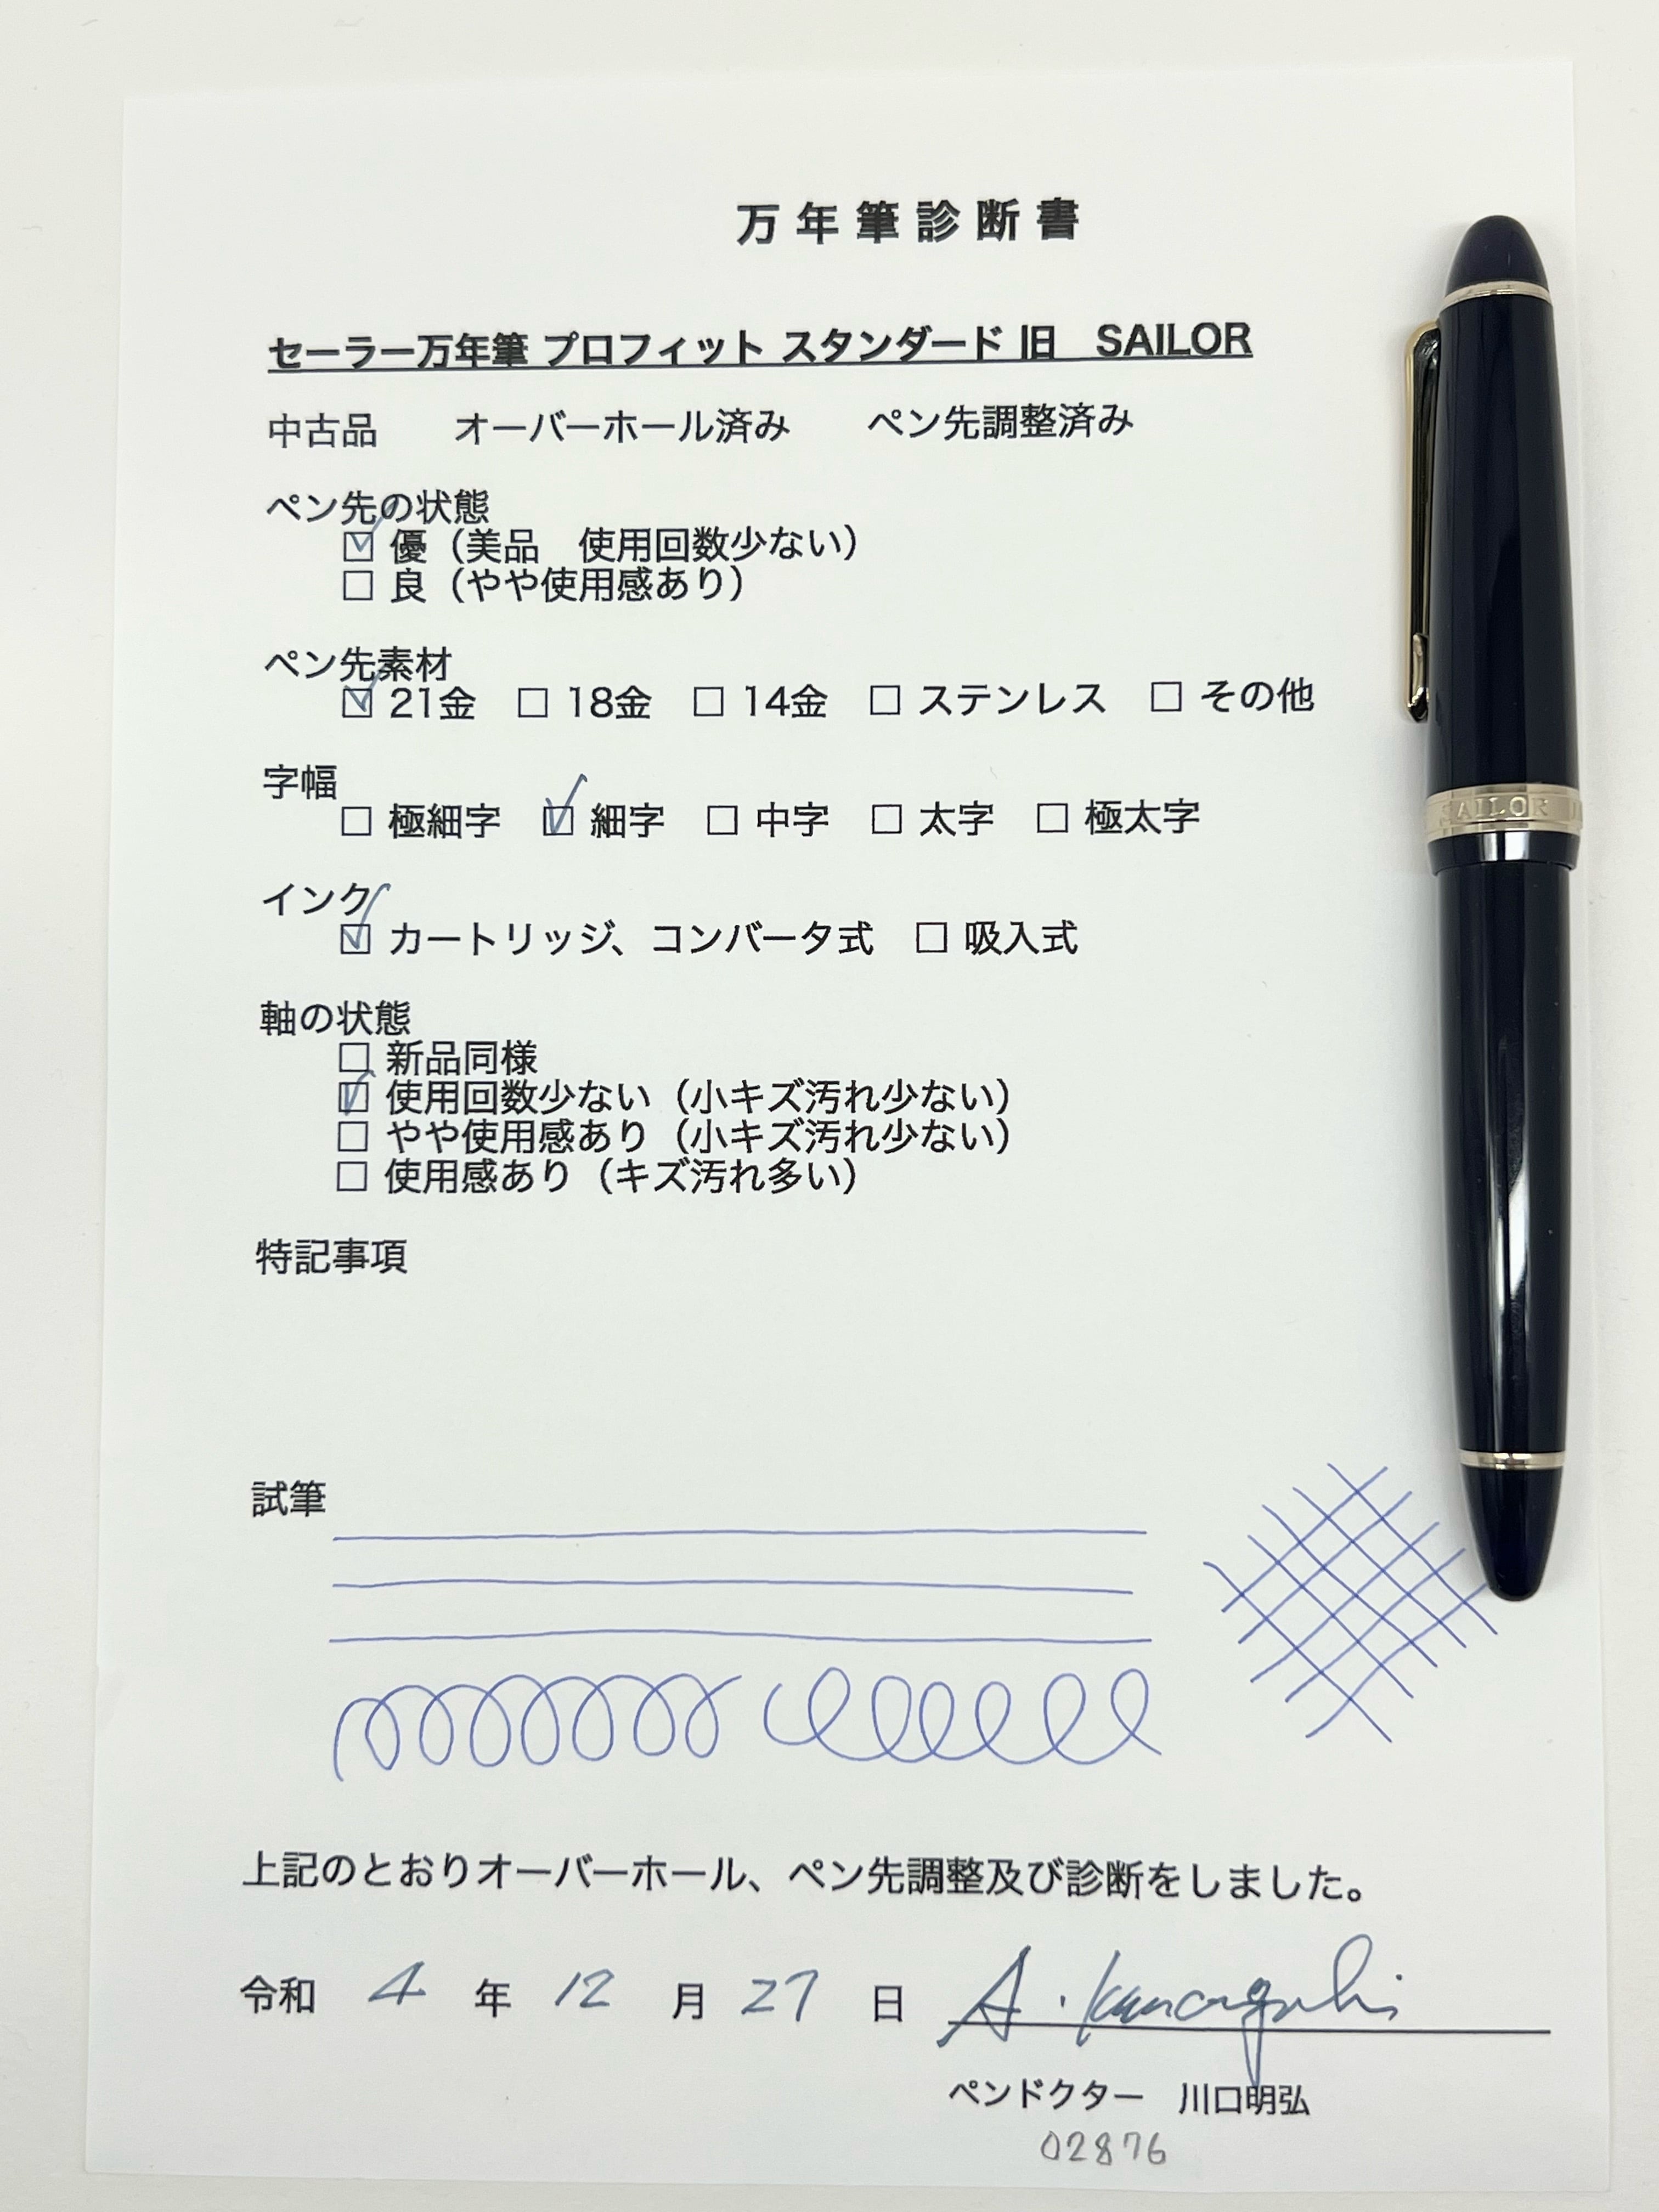 万年筆診断書
セーラー万年筆 プロフィット スタンダード 旧　SAILOR
中古品　　オーバーホール済み　　ペン先調整済み
ペン先の状態
☑ 優（美品　使用回数少ない）
☐ 良（やや使用感あり）
ペン先素材
☑ 21金　☐ 18金　☐ 14金　☐ ステンレス　☐ その他
字幅
☐ 極細字　☑ 細字　☐ 中字　☐ 太字　☐ 極太字
インク
☑ カートリッジ、コンバータ式　☐ 吸入式
軸の状態
☐ 新品同様
☑ 使用回数少ない（小キズ汚れ少ない）
☐ やや使用感あり（小キズ汚れ少ない）
☐ 使用感あり（キズ汚れ多い）
特記事項
試筆
上記のとおりオーバーホール、ペン先調整及び診断をしました。
令和　4　年　12　月　27　日　A. Kawaguchi
ペンドクター　川口明弘
02876
SAILOR